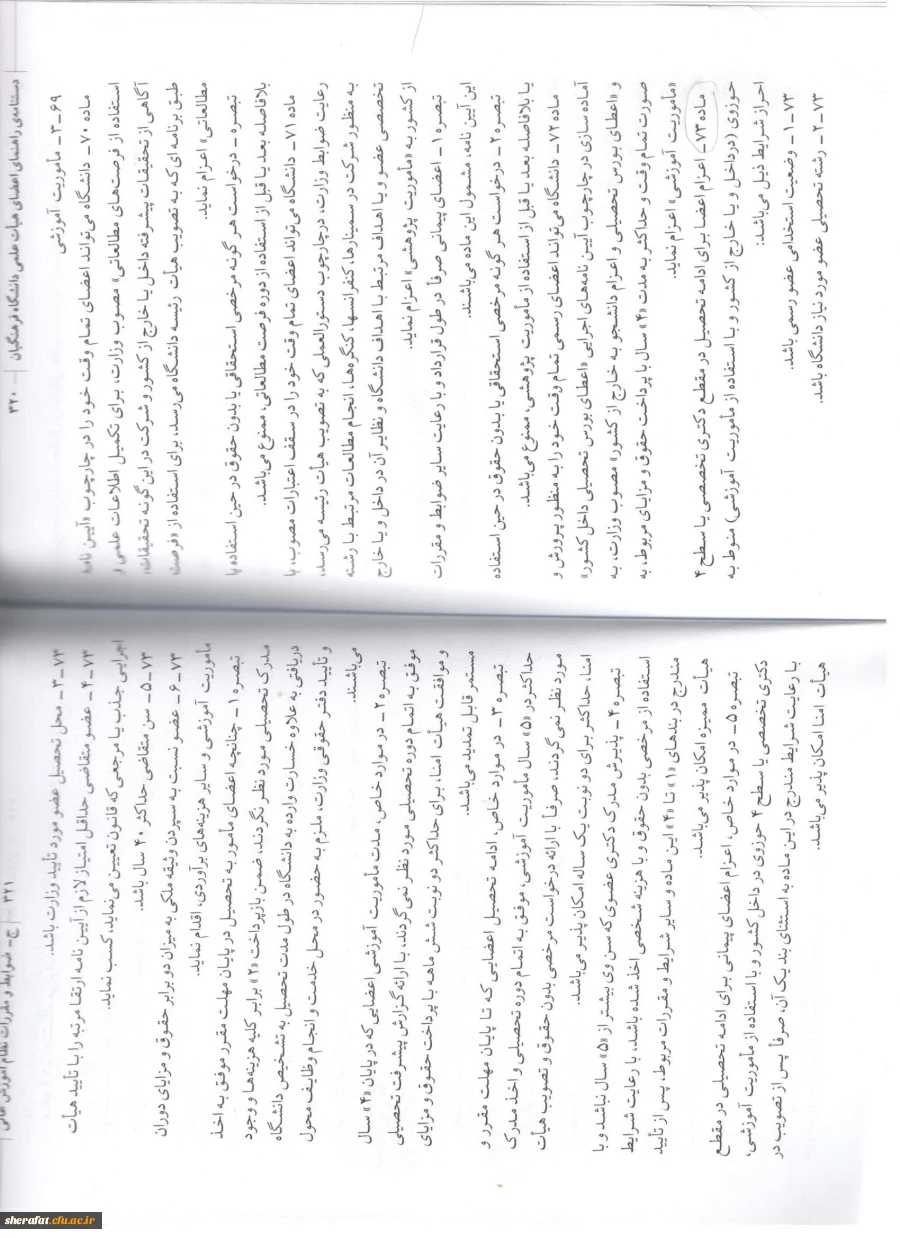 ۳۲۰ – دستنامه‌ی راهنمای اعضای هیأت علمی دانشگاه فرهنگیان
۶۹-۳- مأموریت آموزشی
ماده ۷۰- دانشگاه می‌تواند اعضای تمام وقت خود را در چارچوب «آیین نامه
استفاده از فرصت‌های مطالعاتی» مصوب وزارت، برای تکمیل اطلاعات علمی و
آگاهی از تحقیقات پیشرفته داخل یا خارج از کشور و شرکت در این گونه تحقیقات،
طبق برنامه ای که به تصویب هیأت رئیسه دانشگاه می‌رسد، برای استفاده از «فرصت
مطالعاتی» اعزام نماید.
تبصره – درخواست هر گونه مرخصی استحقاقی یا بدون حقوق در حین استفاده یا
بلافاصله بعد یا قبل از استفاده از دوره فرصت مطالعاتی، ممنوع می‌باشد.
ماده ۷۱- دانشگاه می‌تواند اعضای تمام وقت خود را در سقف اعتبارات مصوب، با
رعایت ضوابط وزارت، در چارچوب دستورالعملی که به تصویب هیأت رئیسه می‌رسد،
به منظور شرکت در سمینارها، کنفرانسها، کنگره‌ها، انجام مطالعات مرتبط با رشته
تخصصی عضو و یا اهداف مرتبط با اهداف دانشگاه و نظایر آن در داخل و یا خارج
از کشور به «مأموریت پژوهشی» اعزام نماید.
تبصره ۱- اعضای پیمانی صرفاً در طول قرارداد و با رعایت سایر ضوابط و مقررات
این آیین نامه، مشمول این ماده می‌باشند.
تبصره ۲- درخواست هر گونه مرخصی استحقاقی یا بدون حقوق در حین استفاده
یا بلافاصله بعد یا قبل از استفاده از مأموریت پژوهشی، ممنوع می‌باشد.
ماده ۷۲- دانشگاه می‌تواند اعضای رسمی تمام وقت خود را به منظور پرورش و
آماده سازی در چارچوب آیین نامه‌های اجرایی «اعطای بورس تحصیلی داخل کشور»
و «اعطای بورس تحصیلی و اعزام دانشجو به خارج از کشور» مصوب وزارت، به
صورت تمام وقت و حداکثر به مدت «۴» سال با پرداخت حقوق و مزایای مربوط، به
«مأموریت آموزشی» اعزام نماید.
ماده ۷۳- اعزام اعضا برای ادامه تحصیل در مقطع دکتری تخصصی یا سطح ۴
حوزوی (در داخل و یا خارج از کشور و با استفاده از مأموریت آموزشی) منوط به
احراز شرایط ذیل می‌باشد:
۷۳-۱- وضعیت استخدامی عضو رسمی باشد.
۷۳-۲- رشته تحصیلی عضو مورد نیاز دانشگاه باشد.
ج- ضوابط و مقررات نظام آموزش عالی – ۳۲۱
۷۳-۳- محل تحصیل عضو مورد تأیید وزارت باشد.
۷۳-۴- عضو متقاضی حداقل امتیاز لازم از آیین نامه ارتقا مرتبه را با تأیید هیأت
اجرایی جذب یا مرجعی که قانون تعیین می‌نماید، کسب نماید.
۷۳-۵- سن متقاضی حداکثر ۴۰ سال باشد.
۷۳-۶- عضو نسبت به سپردن وثیقه ملکی به میزان دو برابر حقوق و مزایای دوران
مأموریت آموزشی و سایر هزینه‌های برآوردی، اقدام نماید.
تبصره ۱- چنانچه اعضای مأمور به تحصیل در پایان مهلت مقرر موفق به اخذ
مدرک تحصیلی مورد نظر نگردند، ضمن بازپرداخت «۲» برابر کلیه هزینه‌ها و وجوه
دریافتی به علاوه خسارت وارده به دانشگاه در طول مدت تحصیل به تشخیص دانشگاه
و تأیید دفتر حقوقی وزارت، ملزم به حضور در محل خدمت و انجام وظایف محول
می‌باشند.
تبصره ۲- در موارد خاص، مدت مأموریت آموزشی اعضایی که در پایان «۴» سال
موفق به اتمام دوره تحصیلی مورد نظر نمی گردند، با ارائه گزارش پیشرفت تحصیلی
و موافقت هیأت امنا، برای حداکثر دو نوبت شش ماهه با پرداخت حقوق و مزایای
مستمر قابل تمدید می‌باشد.
تبصره ۳- در موارد خاص، ادامه تحصیل اعضایی که تا پایان مهلت مقرر و
حداکثر در «۵» سال مأموریت آموزشی، موفق به اتمام دوره تحصیلی و اخذ مدرک
مورد نظر نمی گردند، صرفاً با ارائه درخواست مرخصی بدون حقوق و تصویب هیأت
امنا، حداکثر برای دو نوبت یک ساله امکان پذیر می‌باشد.
تبصره ۴- پذیرش مدرک دکتری عضوی که سن وی بیشتر از «۵» سال نباشد و با
استفاده از مرخصی بدون حقوق و با هزینه شخصی اخذ شده باشد، با رعایت شرایط
مندرج در بندهای «۱» تا «۴» این ماده و سایر شرایط و مقررات مربوط، پس از تأیید
هیأت ممیزه امکان پذیر می‌باشد.
تبصره ۵- در موارد خاص، اعزام اعضای پیمانی برای ادامه تحصیلی در مقطع
دکتری تخصصی یا سطح ۴ حوزوی در داخل کشور و با استفاده از مأموریت آموزشی،
با رعایت شرایط مندرج در این ماده به استثنای بند یک آن، صرفاً پس از تصویب در
هیأت امنا امکان پذیر می‌باشد.
sherafat.cfu.ac.ir